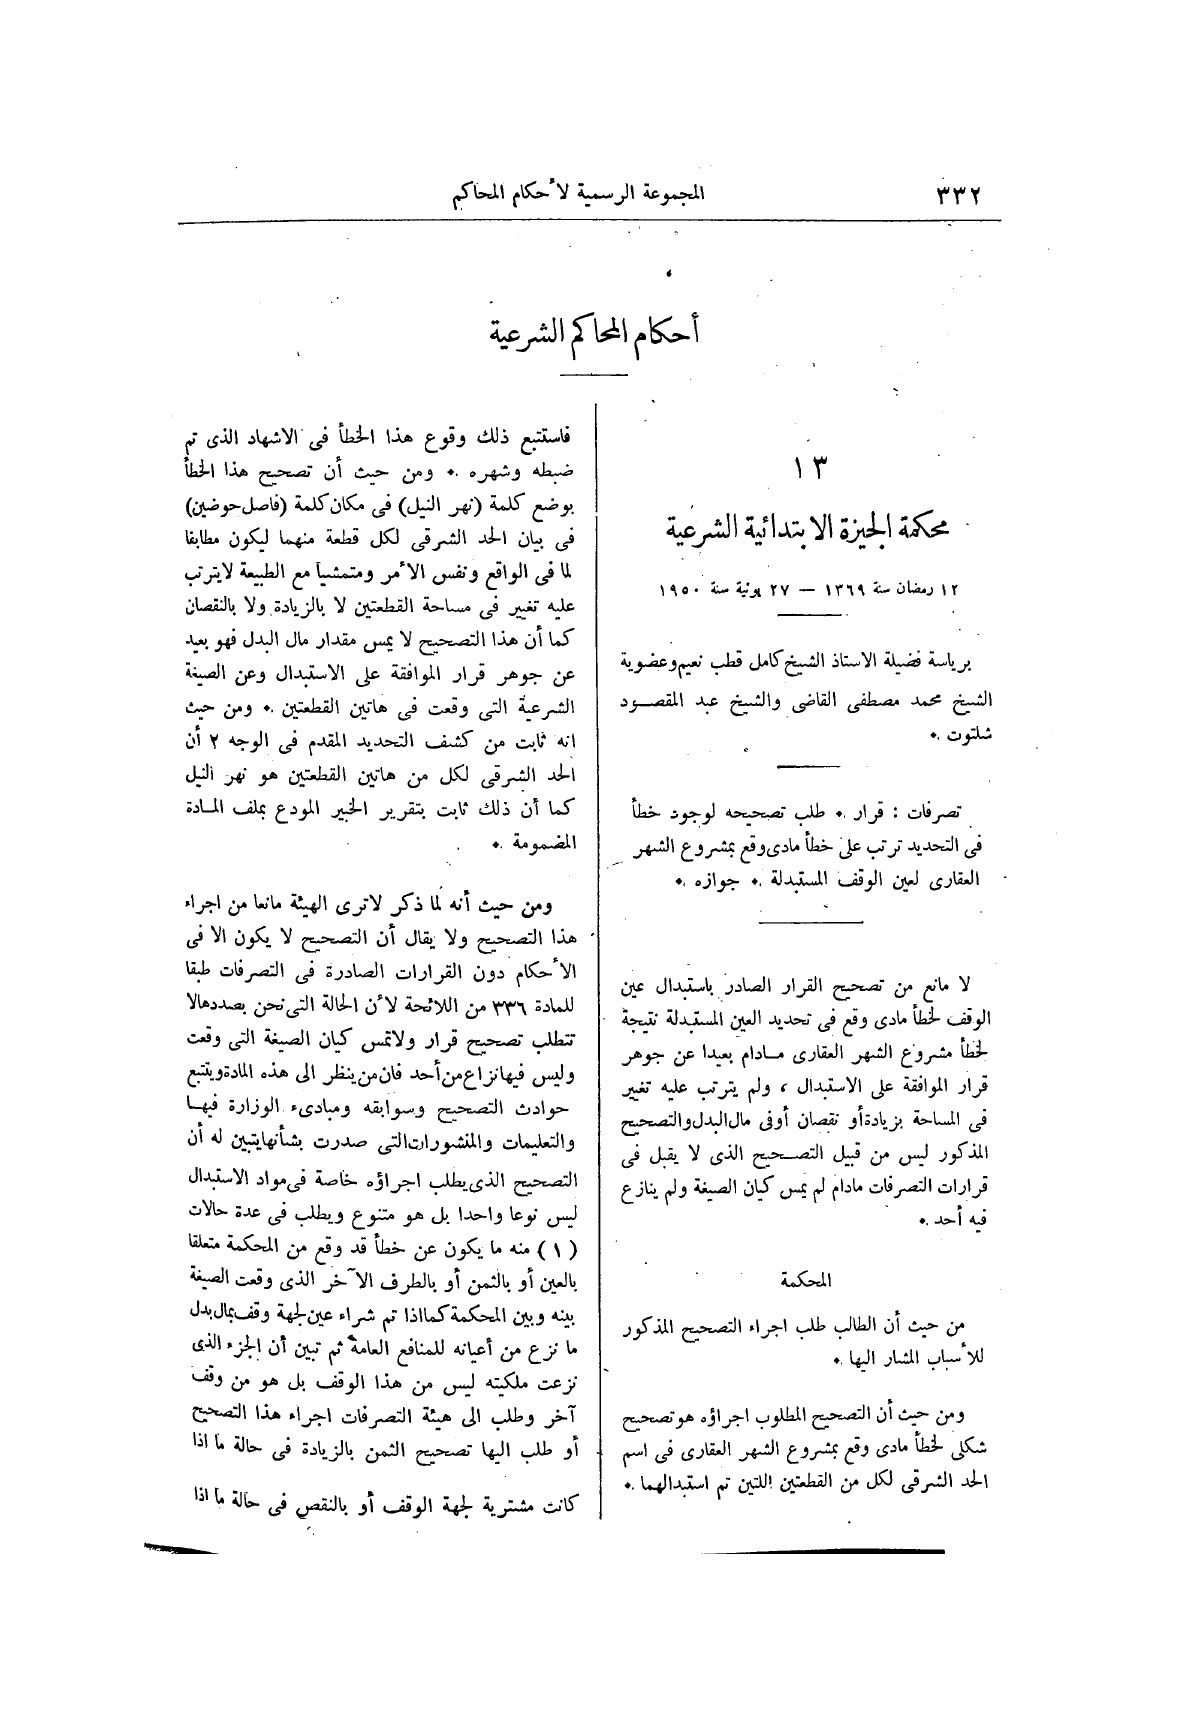 ٣٣٢
المجموعة الرسمية لأحكام المحاكم
أحكام المحاكم الشرعية
١٣
محكمة الجيزة الابتدائية الشرعية
١٢ رمضان سنة ١٣٦٩ — ٢٧ يونية سنة ١٩٥٠
برياسة فضيلة الاستاذ الشيخ كامل قطب نعيم وعضوية
الشيخ محمد مصطفى القاضى والشيخ عبد المقصود
شلتوت .
تصرفات : قرار . طلب تصحيحه لوجود خطأ
فى التحديد ترتب على خطأ مادى وقع بمشروع الشهر
العقارى لعين الوقف المستبدلة . جوازه .
لا مانع من تصحيح القرار الصادر باستبدال عين
الوقف لخطأ مادى وقع فى تحديد العين المستبدلة نتيجة
لخطأ مشروع الشهر العقارى مادام بعيدا عن جوهر
قرار الموافقة على الاستبدال ، ولم يترتب عليه تغيير
فى المساحة بزيادة أو نقصان أو فى مال البدل والتصحيح
المذكور ليس من قبيل التصحيح الذى لا يقبل فى
قرارات التصرفات مادام لم يمس كيان الصيغة ولم ينازع
فيه أحد .
المحكمة
من حيث أن الطالب طلب اجراء التصحيح المذكور
للأسباب المشار اليها .
ومن حيث أن التصحيح المطلوب اجراؤه هو تصحيح
شكلى لخطأ مادى وقع بمشروع الشهر العقارى فى اسم
الحد الشرقى لكل من القطعتين اللتين تم استبدالهما .
فاستتبع ذلك وقوع هذا الخطأ فى الاشهاد الذى تم
ضبطه وشهره . ومن حيث أن تصحيح هذا الخطأ
بوضع كلمة (نهر النيل) فى مكان كلمة (فاصل حوضين)
فى بيان الحد الشرقى لكل قطعة منهما ليكون مطابقا
لما فى الواقع ونفس الأمر ومتمشيا مع الطبيعة لا يترتب
عليه تغيير فى مساحة القطعتين لا بالزيادة ولا بالنقصان
كما أن هذا التصحيح لا يمس مقدار مال البدل فهو بعيد
عن جوهر قرار الموافقة على الاستبدال وعن الصيغة
الشرعية التى وقعت فى هاتين القطعتين . ومن حيث
انه ثابت من كشف التحديد المقدم فى الوجه ٢ أن
الحد الشرقى لكل من هاتين القطعتين هو نهر النيل
كما أن ذلك ثابت بتقرير الخبير المودع بملف المادة
المضمومة .
ومن حيث أنه لما ذكر لا ترى الهيئة مانعا من اجراء
هذا التصحيح ولا يقال أن التصحيح لا يكون الا فى
الأحكام دون القرارات الصادرة فى التصرفات طبقا
للمادة ٣٣٦ من اللائحة لأن الحالة التى نحن بصددها لا
تتطلب تصحيح قرار ولا تمس كيان الصيغة التى وقعت
وليس فيها نزاع من أحد فان من ينظر الى هذه المادة ويتتبع
حوادث التصحيح وسوابقه ومبادىء الوزارة فيها
والتعليمات والمنشورات التى صدرت بشأنها يتبين له أن
التصحيح الذى يطلب اجراؤه خاصة فى مواد الاستبدال
ليس نوعا واحدا بل هو متنوع ويطلب فى عدة حالات
(١) منه ما يكون عن خطأ قد وقع من المحكمة متعلقا
بالعين أو بالثمن أو بالطرف الآخر الذى وقعت الصيغة
بينه وبين المحكمة كما اذا تم شراء عين لجهة وقف بمال بدل
ما نزع من أعيانه للمنافع العامة ثم تبين أن الجزء الذى
نزعت ملكيته ليس من هذا الوقف بل هو من وقف
آخر وطلب الى هيئة التصرفات اجراء هذا التصحيح
أو طلب اليها تصحيح الثمن بالزيادة فى حالة ما اذا
كانت مشترية لجهة الوقف أو بالنقص فى حالة ما اذا